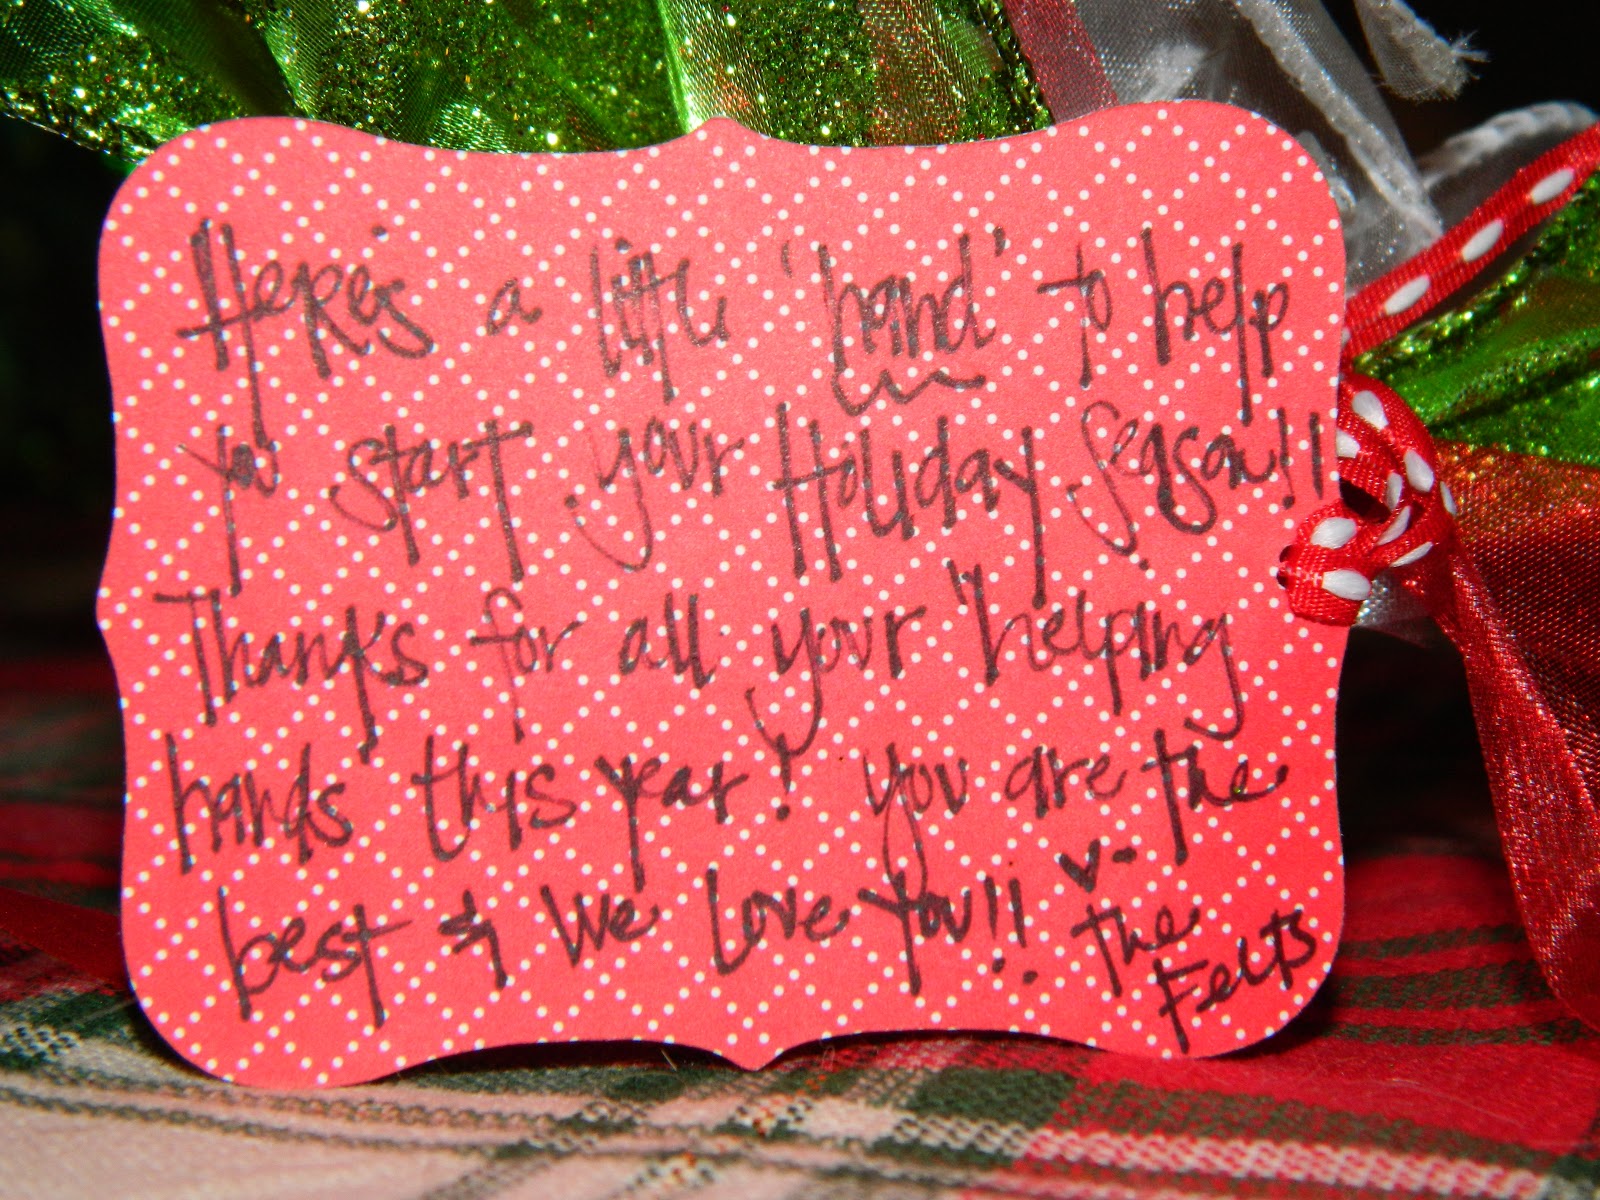 Here's a little 'hand' to help
you start your Holiday Season!!
Thanks for all your "helping
hands this year! You are the
best & We Love You!! ♥-
the
Felts